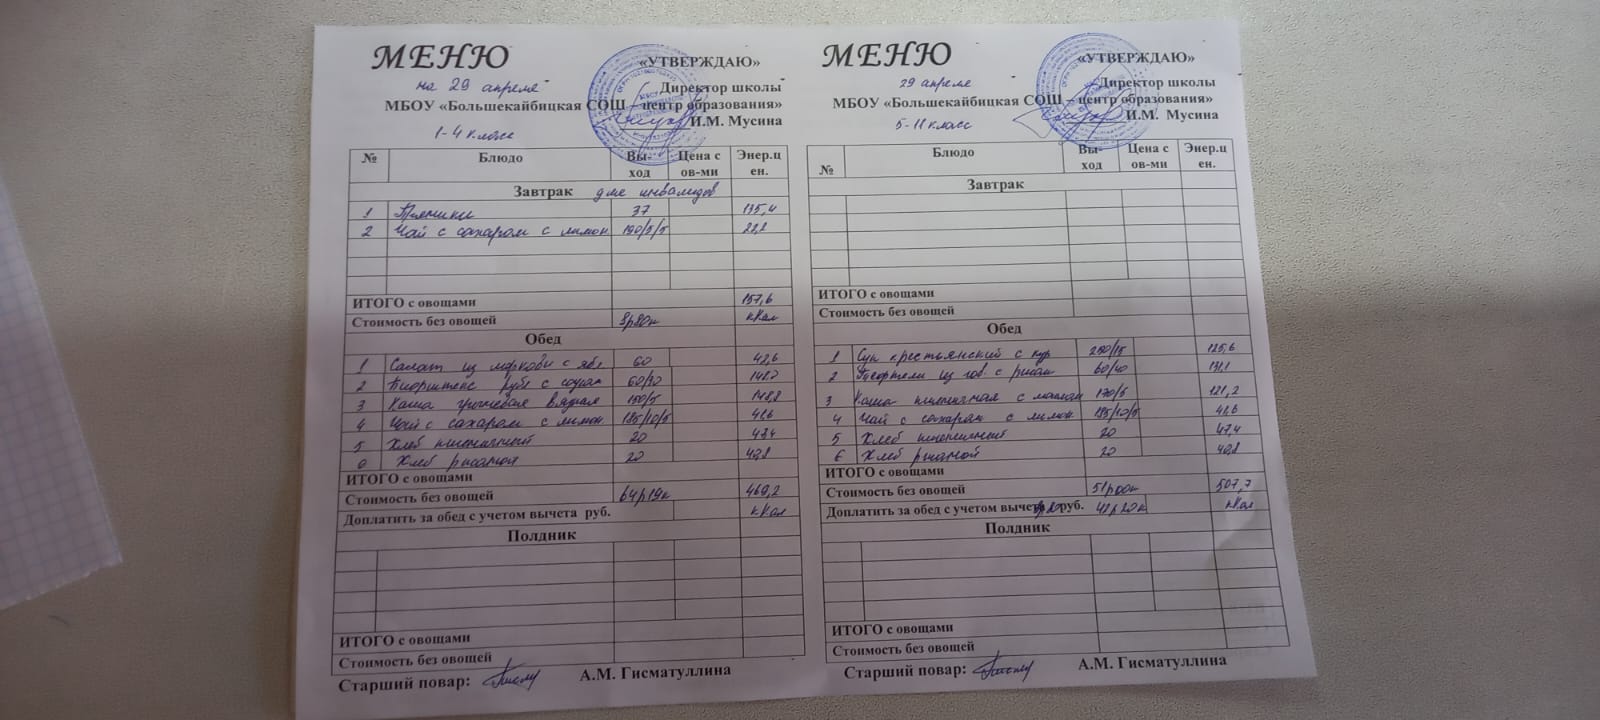 МЕНЮ
«УТВЕРЖДАЮ»
на 29 апреля
Директор школы
МБОУ «Большекайбицкая СОШ – центр образования»
И.М. Мусина
1-4 класс
№ Блюдо Вы-ход Цена с ов-ми Энер.ц ен.
Завтрак для инвалидов
1 Пряники 37 135,4
2 Чай с сахаром с лимон 190/5/5 22,2
ИТОГО с овощами 157,6
Стоимость без овощей кКал
Обед
1 Салат из моркови с ябл 60 42,6
2 рубл с соусом 148,7
3 Каша гречневая вязкая 150/5 148,8
4 Чай с сахаром с лимон 185/10/5 41,6
5 Хлеб пшеничный 20 47,4
6 Хлеб ржаной 20 40,8
ИТОГО с овощами
Стоимость без овощей 64р19к 469,2
Доплатить за обед с учетом вычета руб. кКал
Полдник
ИТОГО с овощами
Стоимость без овощей
Старший повар: А.М. Гисматуллина
МЕНЮ
«УТВЕРЖДАЮ»
29 апреля
Директор школы
МБОУ «Большекайбицкая СОШ – центр образования»
И.М. Мусина
5-11 класс
№ Блюдо Вы-ход Цена с ов-ми Энер.ц ен.
Завтрак
ИТОГО с овощами
Стоимость без овощей
Обед
1 Суп крестьянский с кур 250/15 125,6
2 из гов. с рисом 60/40 131,1
3 Каша с маслом 170/5 121,2
4 Чай с сахаром с лимон 185/10/5 41,6
5 Хлеб пшеничный 20 47,4
6 Хлеб ржаной 20 40,8
ИТОГО с овощами
Стоимость без овощей 51р00к 507,7
Доплатить за обед с учетом вычета руб. кКал
Полдник
ИТОГО с овощами
Стоимость без овощей
Старший повар: А.М. Гисматуллина